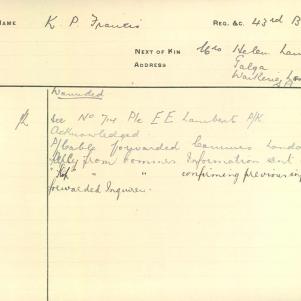 NAME K. P. Francis REG. &C. 43rd B
NEXT OF KIN Mrs Helen Lam
ADDRESS Galga
Waikerie
S.A
Wounded
See No 714 Pte E E Lambert
Acknowledged
P/Cable forwarded Commrs Londo
Reply from Commrs Information sent
" " " confirming previous in
forwarded Inquirer.